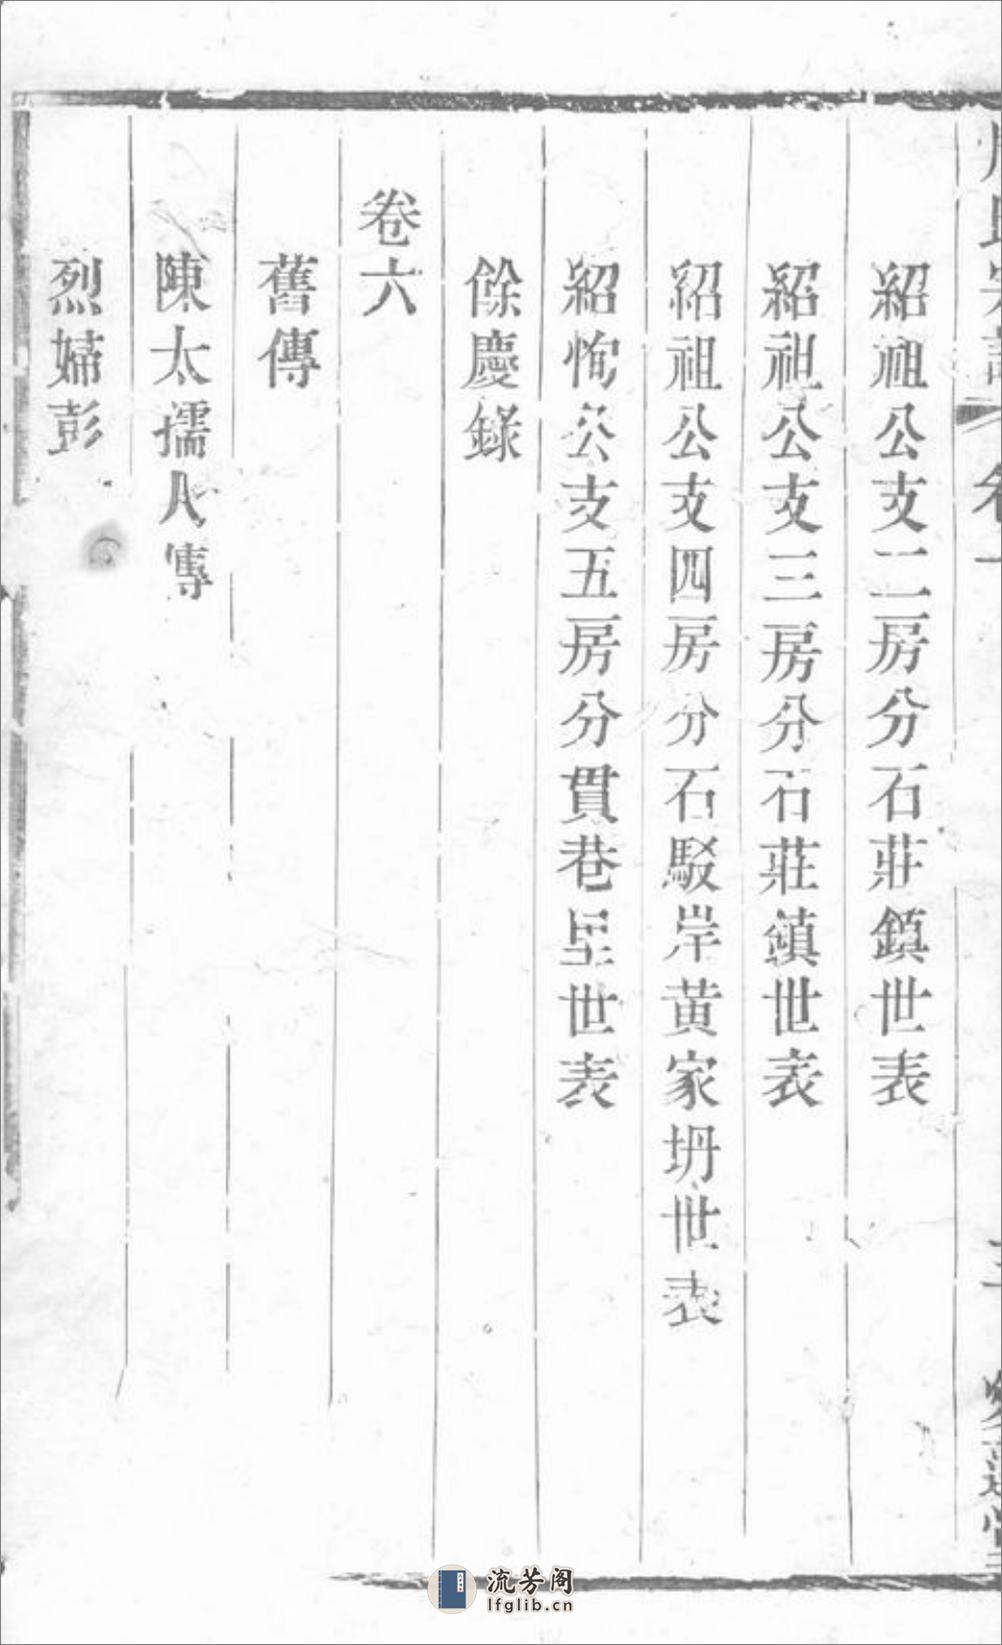 紹祖公支二房分石莊鎮世表
紹祖公支三房分石莊鎮世表
紹祖公支四房分石駁岸黄家坍世表
紹恂公支五房分貫巷里世表
餘慶錄
卷六
舊傳
陳太孺人傳
烈婦彭
流芳阁
lfglib.cn